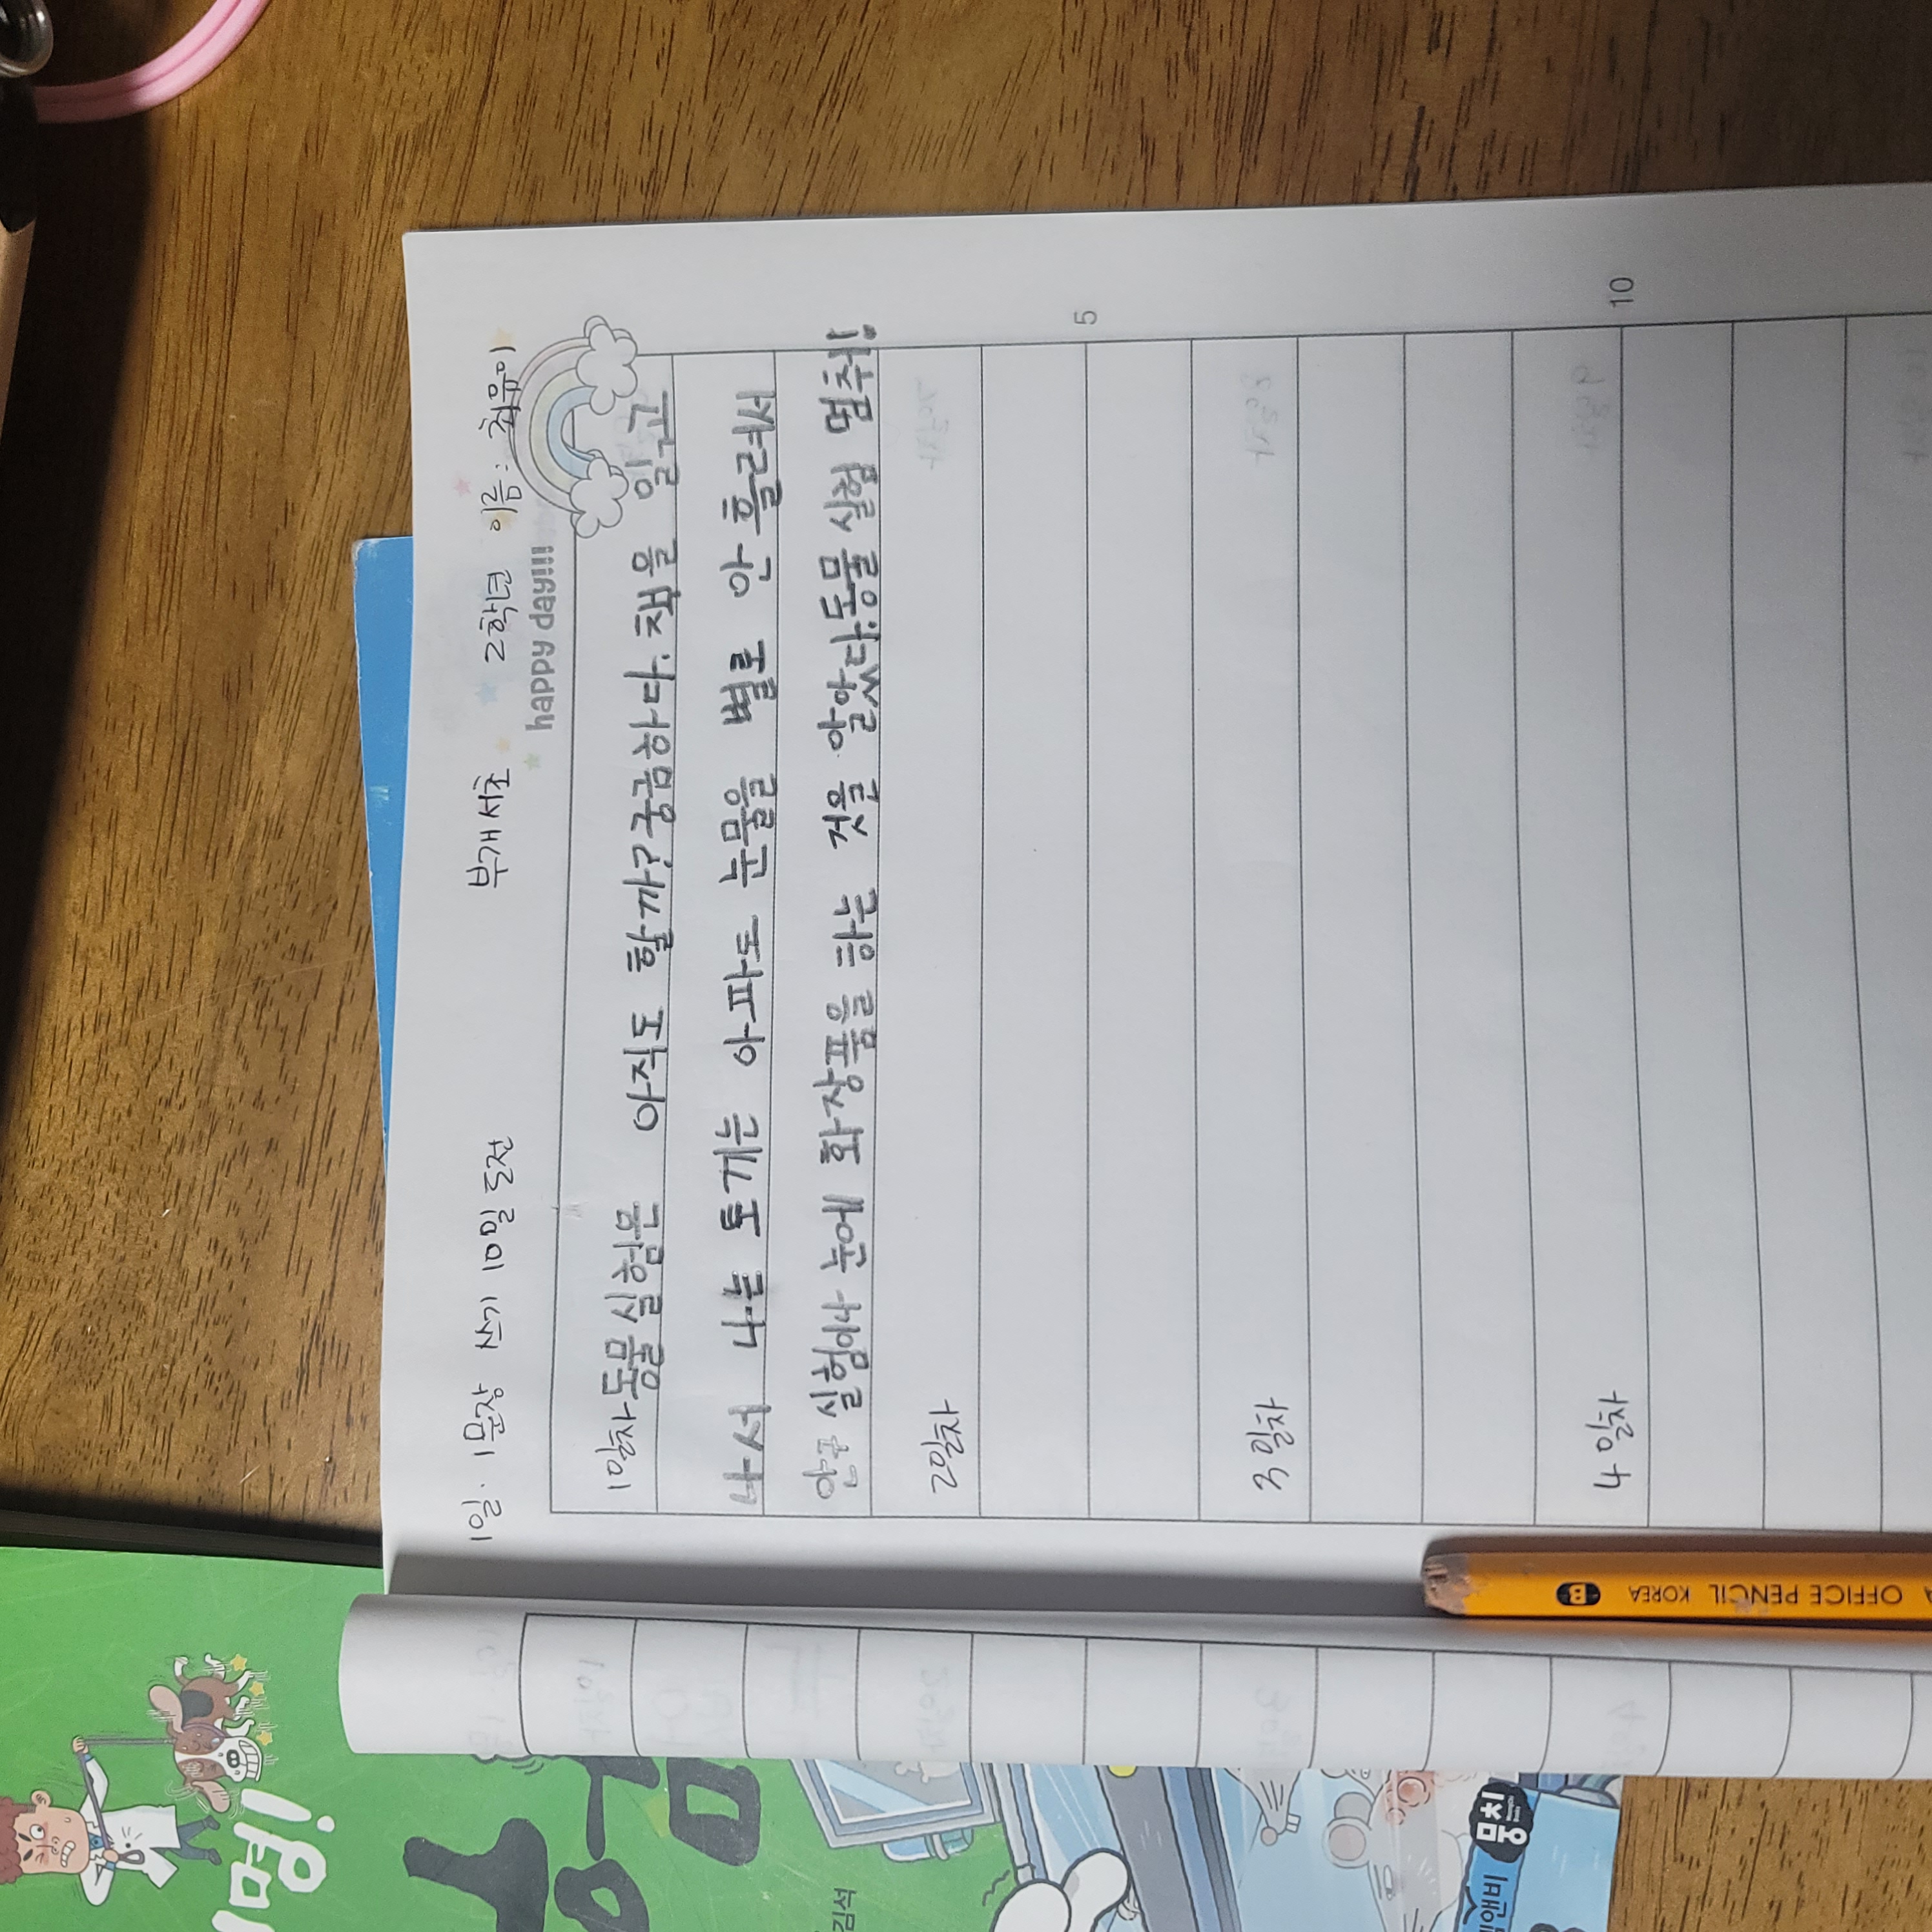 1일. 1문장 쓰기 10일 도전 부개서초 2학년 이름:
happy day!!!
1일차 동물실험은 아직도 할까? 궁금하다. 책을 읽고
나서 나는 토끼는 아파도 눈물을 별로 안 흘려서
안구 실험이나 눈에 화장품을 하는 것을 알았다. 동물 실험 멈춰!
2일차
5
3일차
4일차
10
OFFICE PENCIL KOREA
김석
뭉치